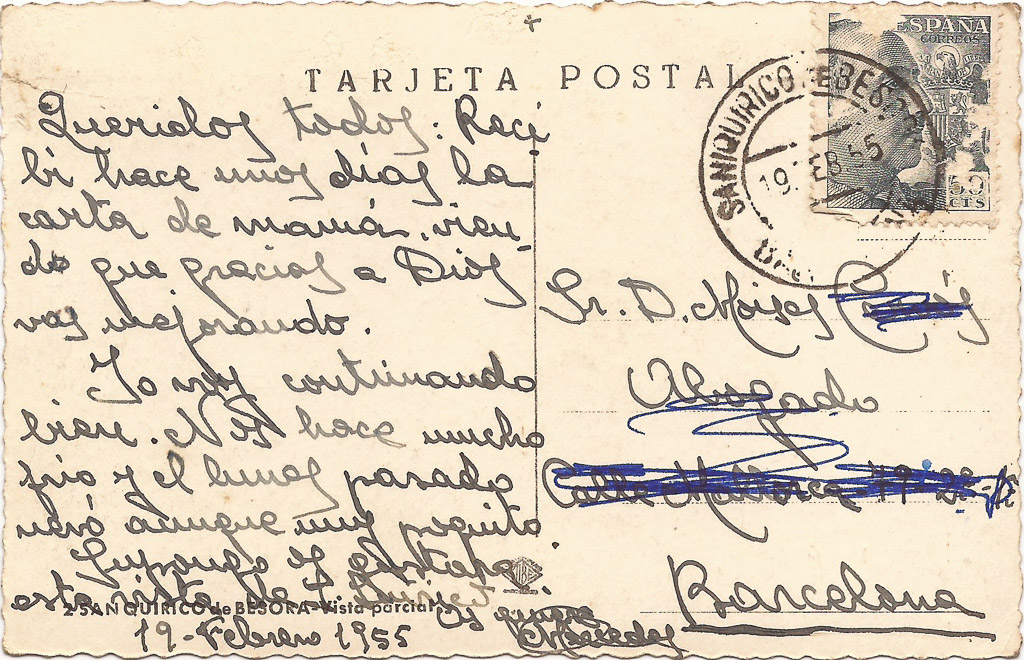 TARJETA POSTAL
ESPAÑA
CORREOS
50
CTS
SAN QUIRICO DE BESORA
19 FEB 55
Queridos todos: Reci
bi hace unos días la
carta de mamá, vien-
do que gracias a Dios
vas mejorando.
Yo voy continuando
bien. Nos hace mucho
frio y el lunes pasado
nevó aunque muy poquito
Supongo os gustará
esta vista de
Os quiere
Mercedes
19-Febrero 1955
2 SAN QUIRICO de BESORA-Vista parcial
Sr. D. Moises
Abogado
Calle Mallorca
Barcelona